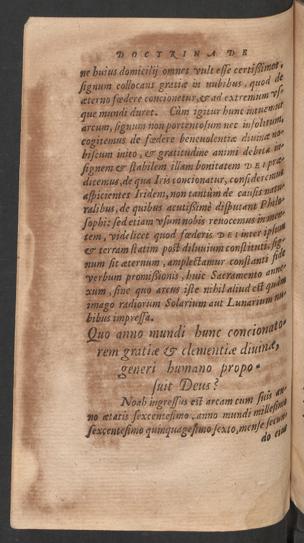 DOCTRINA DE
ne huius domicilij omnes vult esse certissimos,
signum collocans gratiæ in nubibus, quod de
æterno fœdere concionetur, & ad extremum vs-
que mundi duret. Cùm igitur hunc intuemur
arcum, signum non portentosum nec insolitum,
cogitemus de fœdere beneuolentiæ diuinæ no-
biscum inito, & gratitudine animi debita in-
signem & stabilem illam bonitatem DEI præ-
dicemus, de qua Iris concionatur, consideremus
aspicientes Iridem, non tantùm de causis natu-
ralibus, de quibus acutißimè disputant Philo-
sophi: sed etiam vsum nobis reuocemus in men-
tem, videlicet quod fœderis DEI inter ipsum
& terram statim post diluuium constituti, sig-
num sit æternum, amplectamur constanti fide
verbum promißionis, huic Sacramento anne-
xum, sine quo arcus iste nihil aliud est quàm
imago radiorum Solarium aut Lunarium nu-
bibus impressa.
Quo anno mundi hunc concionato-
rem gratiæ & clementiæ diuinæ,
generi humano propo-
suit Deus?
Noah ingressus est arcam cum suis an-
no ætatis sexcentesimo, anno mundi millesimo
sexcentesimo quinquagesimo sexto, mense secun-
do eius